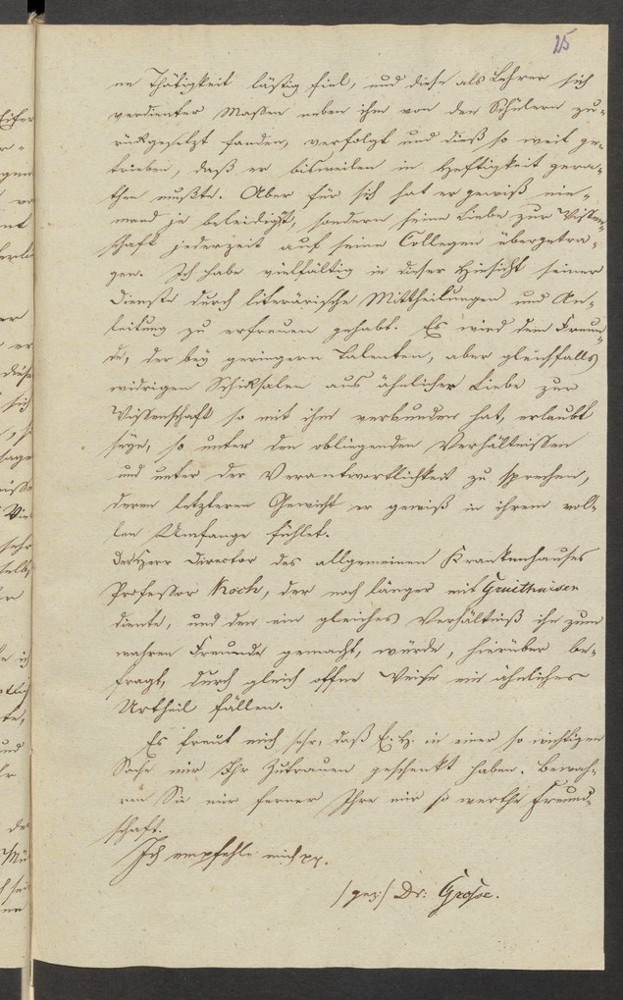 25
ne Thätigkeit lästig fiel, und diese als Lehrer sich
verdienter Maßen neben ihm von den Schülern zu-
rückgesetzt fanden, verfolgt und dieß so weit ge-
trieben, daß er bisweilen in Heftigkeit gera-
then mußte. Aber für sich hat er gewiß nie-
mand je beleidigt, sondern seine Liebe zur Wissen-
schaft jederzeit auf seine Collegen übergetra-
gen. Ich habe vielfältig in dieser Hinsicht seiner
Dienste durch literärische Mittheilungen und An-
leitung zu erfreuen gehabt. Es wird dem Freun-
de, der bey geringern Talenten, aber gleichfalls
widrigen Schiksalen aus ähnlicher Liebe zur
Wissenschaft so mit ihm verbunden hat, erlaubt
seyn, so unter den obliegenden Verhältnissen
und unter der Verantwortlichkeit zu sprechen,
deren letzteren Gewicht er gewiß in ihrem vol-
len Umfange fühlet.
Der Herr Director des allgemeinen Krankenhauses
Professor Koch, der noch länger mit Gruithuisen
diente, und den ein gleiches Verhältniß ihn zum
wahren Freunde gemacht, würde, hierüber be-
fragt, durch gleich offne Weise ein ähnliches
Urtheil fällen.
Es freut mich sehr, daß E. H. in einer so wichtigen
Sache mir Ihr Zutrauen geschenkt haben. Bewah-
ren Sie mir ferner Ihre mir so werthe Freund-
schaft.
Ich empfehle mich pp.
/gez:/ Dr: Grosse.